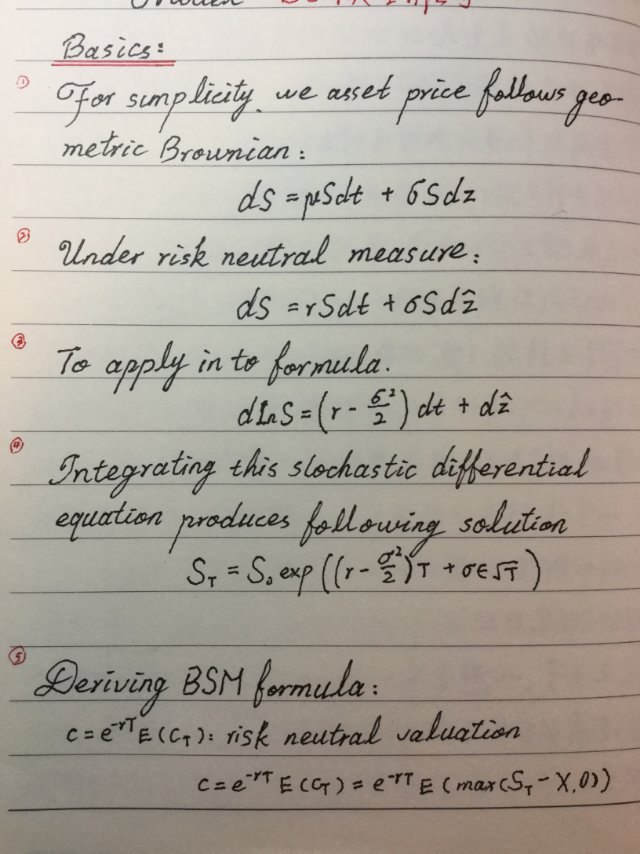 Basics:
① For simplicity, we asset price follows geo-
metric Brownian:
dS = μSdt + σSdz
② Under risk neutral measure:
dS = rSdt + σSdẑ
③ To apply in to formula.
dlnS = (r - σ²/2) dt + dẑ
④ Integrating this stochastic differential
equation produces following solution
S_T = S₀ exp((r - σ²/2)T + σε√T)
⑤ Deriving BSM formula:
c = e^-rT E(C_T): risk neutral valuation
c = e^-rT E(C_T) = e^-rT E(max(S_T - X, 0))